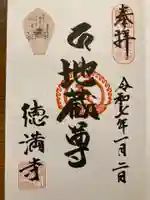 奉拝
令和七年一月二日
地蔵尊
徳満寺